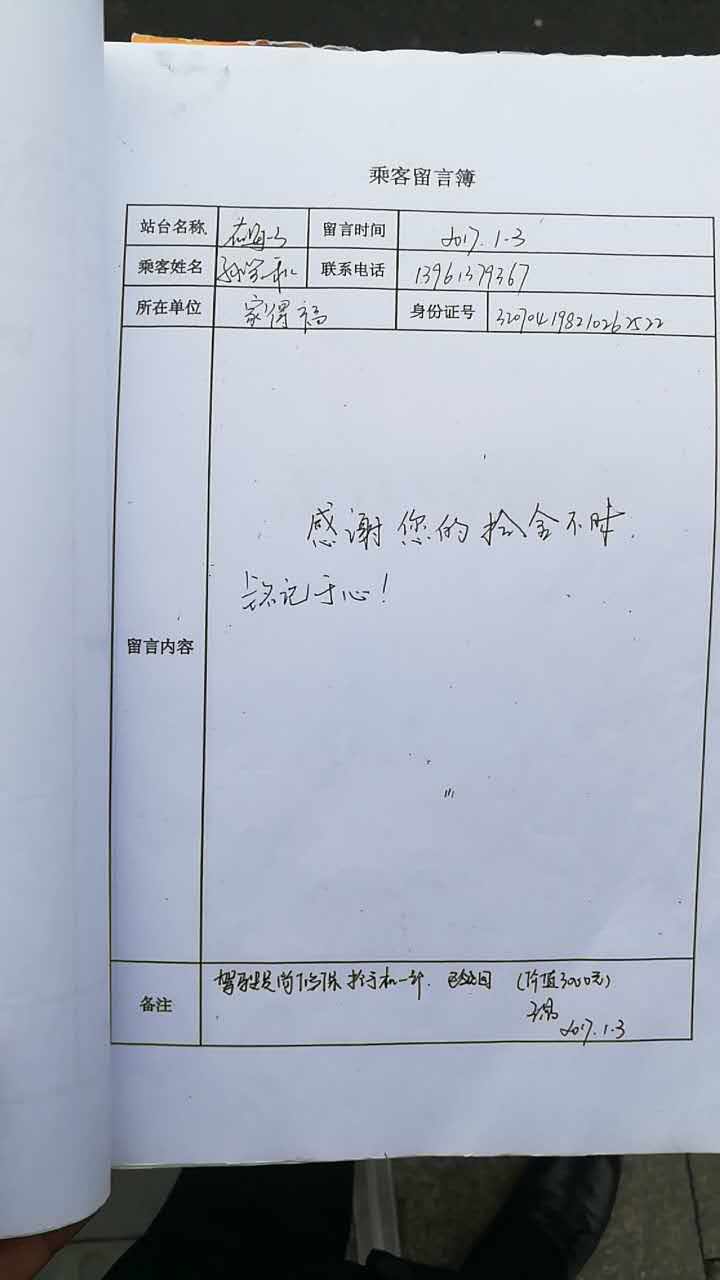 乘客留言簿
站台名称 留言时间 2017.1-3
乘客姓名 联系电话 13961379367
所在单位 家得福 身份证号 320704198210262522
感谢您的拾金不昧.
铭记于心!
留言内容
拾手机一部. 已领回 (价值3000元)
备注
2017.1-3